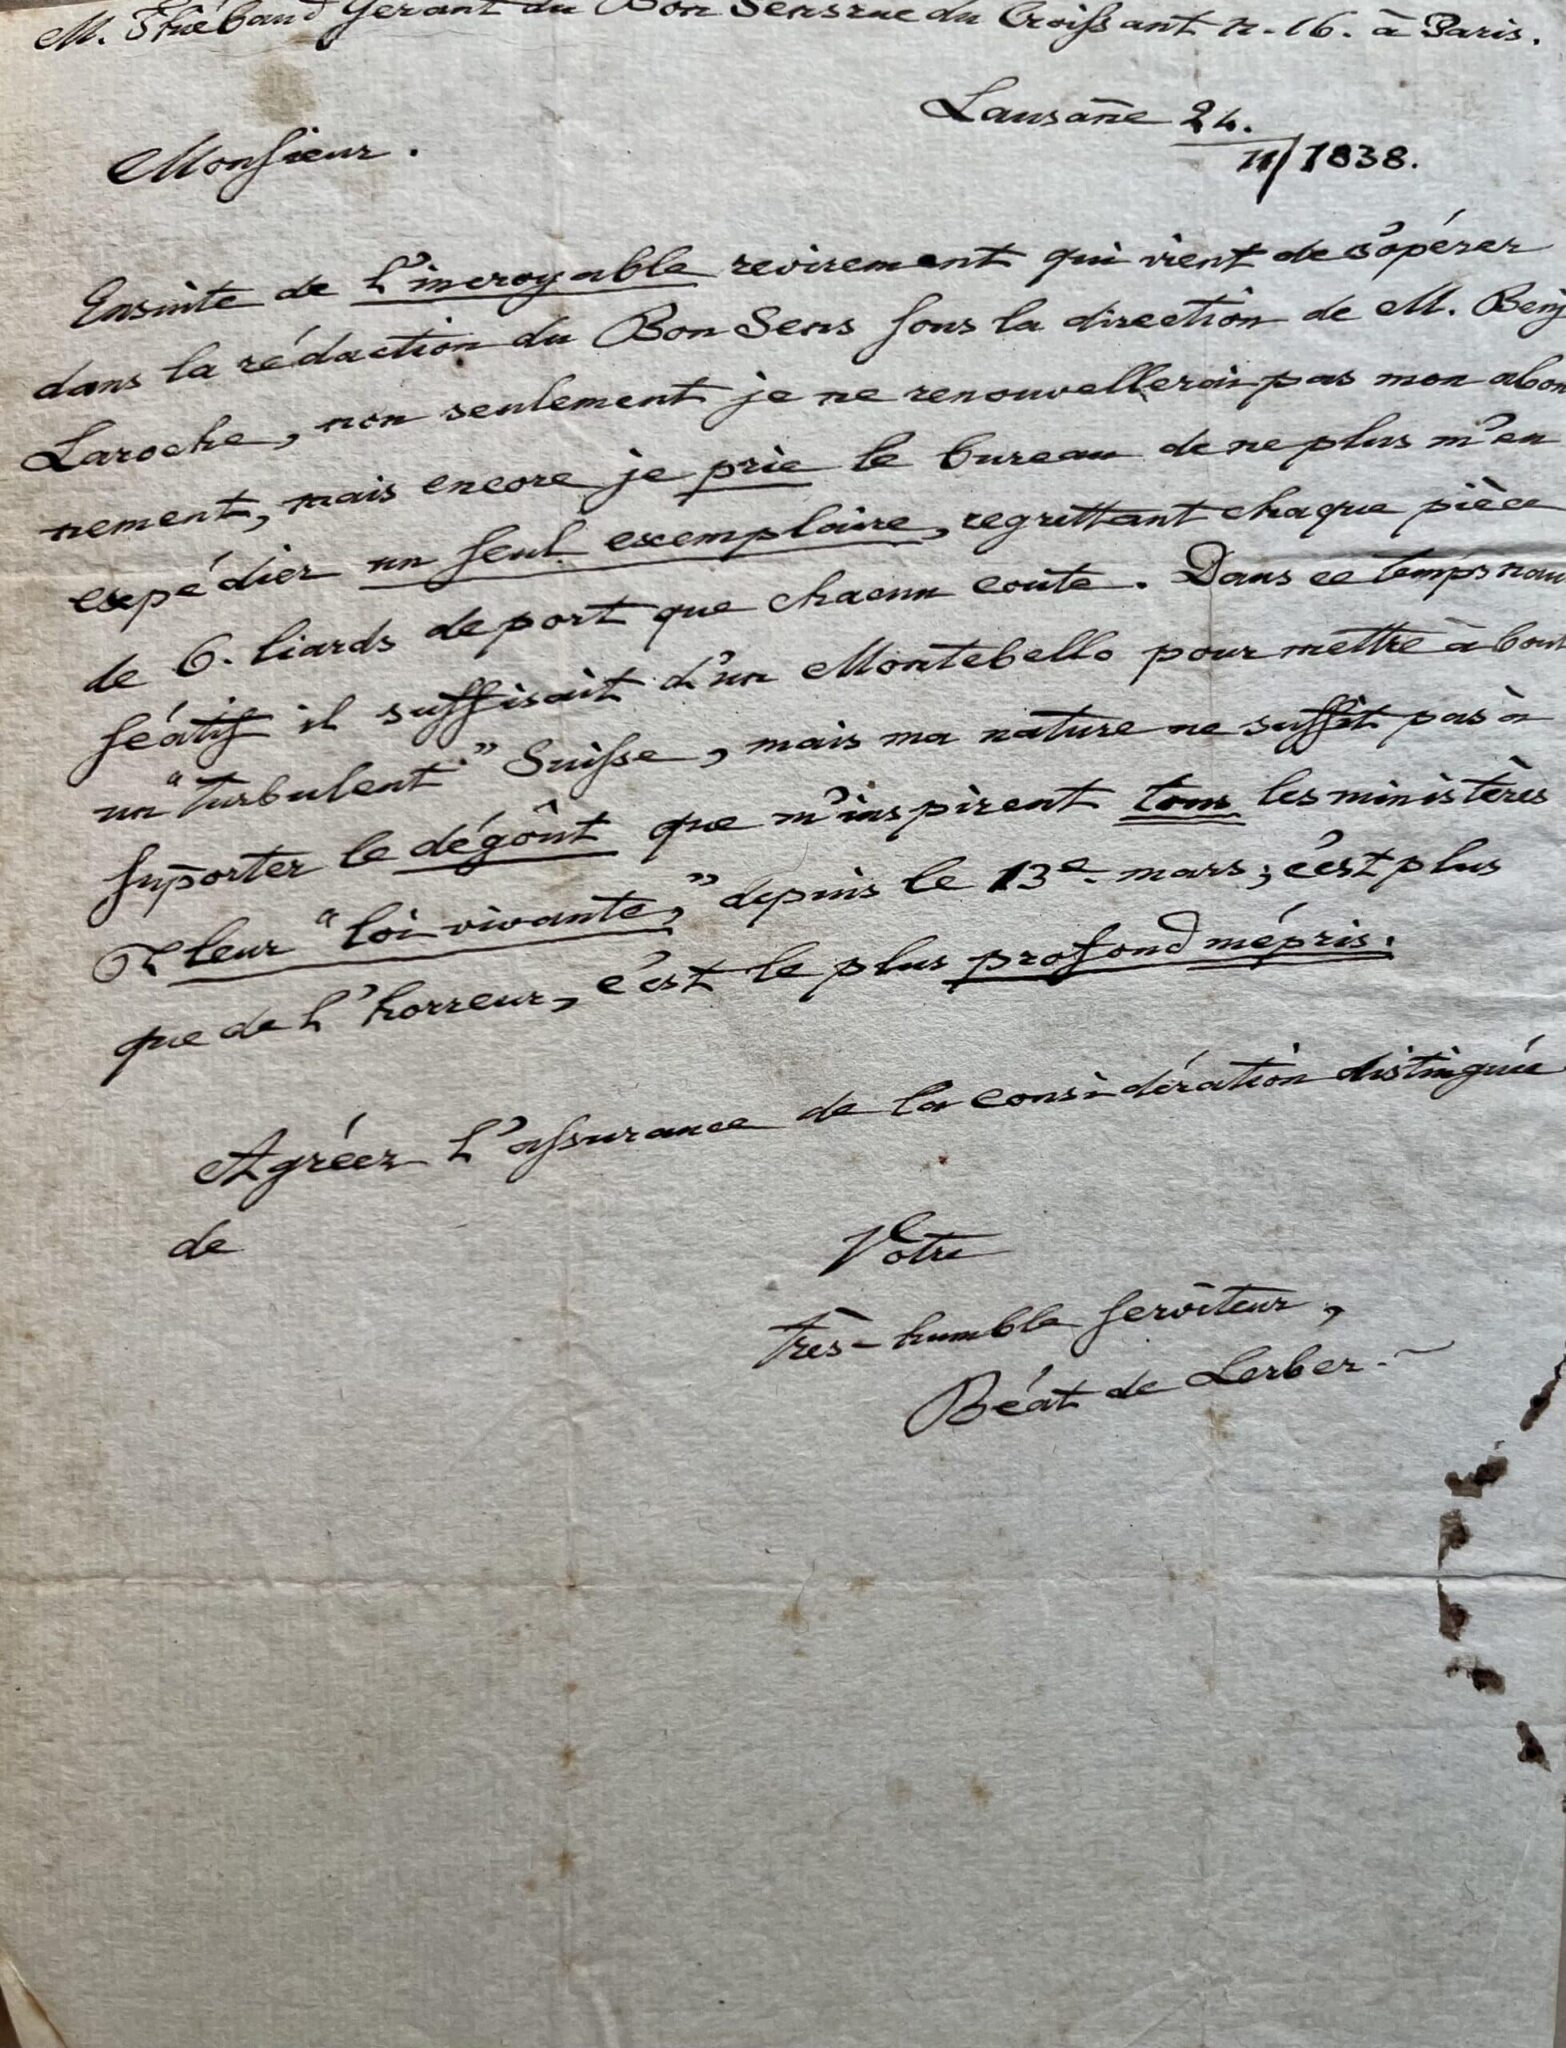 M. Thiébaud Gérant du Bon Sens rue du Croissant n. 16. à Paris.
Lausañe 24.
II/1838.
Monsieur.
Ensuite de l'incroyable revirement qui vient de s'opérer
dans la rédaction du Bon Sens sous la direction de M. Benj
Laroche, non seulement je ne renouvellerai pas mon abon
nement, mais encore je prie le bureau de ne plus m'en
expédier un seul exemplaire, regrettant chaque pièce
de 6. liards de port que chacun coute. Dans ce temps nau
séatif il suffisait d'un Montebello pour mettre à bout
un "turbulent" Suisse, mais ma nature ne suffit pas à
suporter le dégoût que m'inspirent tous les ministères
& leur "loi vivante," depuis le 13e mars; c'est plus
que de l'horreur, c'est le plus profond mépris.
Agréez l'assurance de la considération distinguée
de
Votre
très-humble serviteur,
Béat de Lerber.